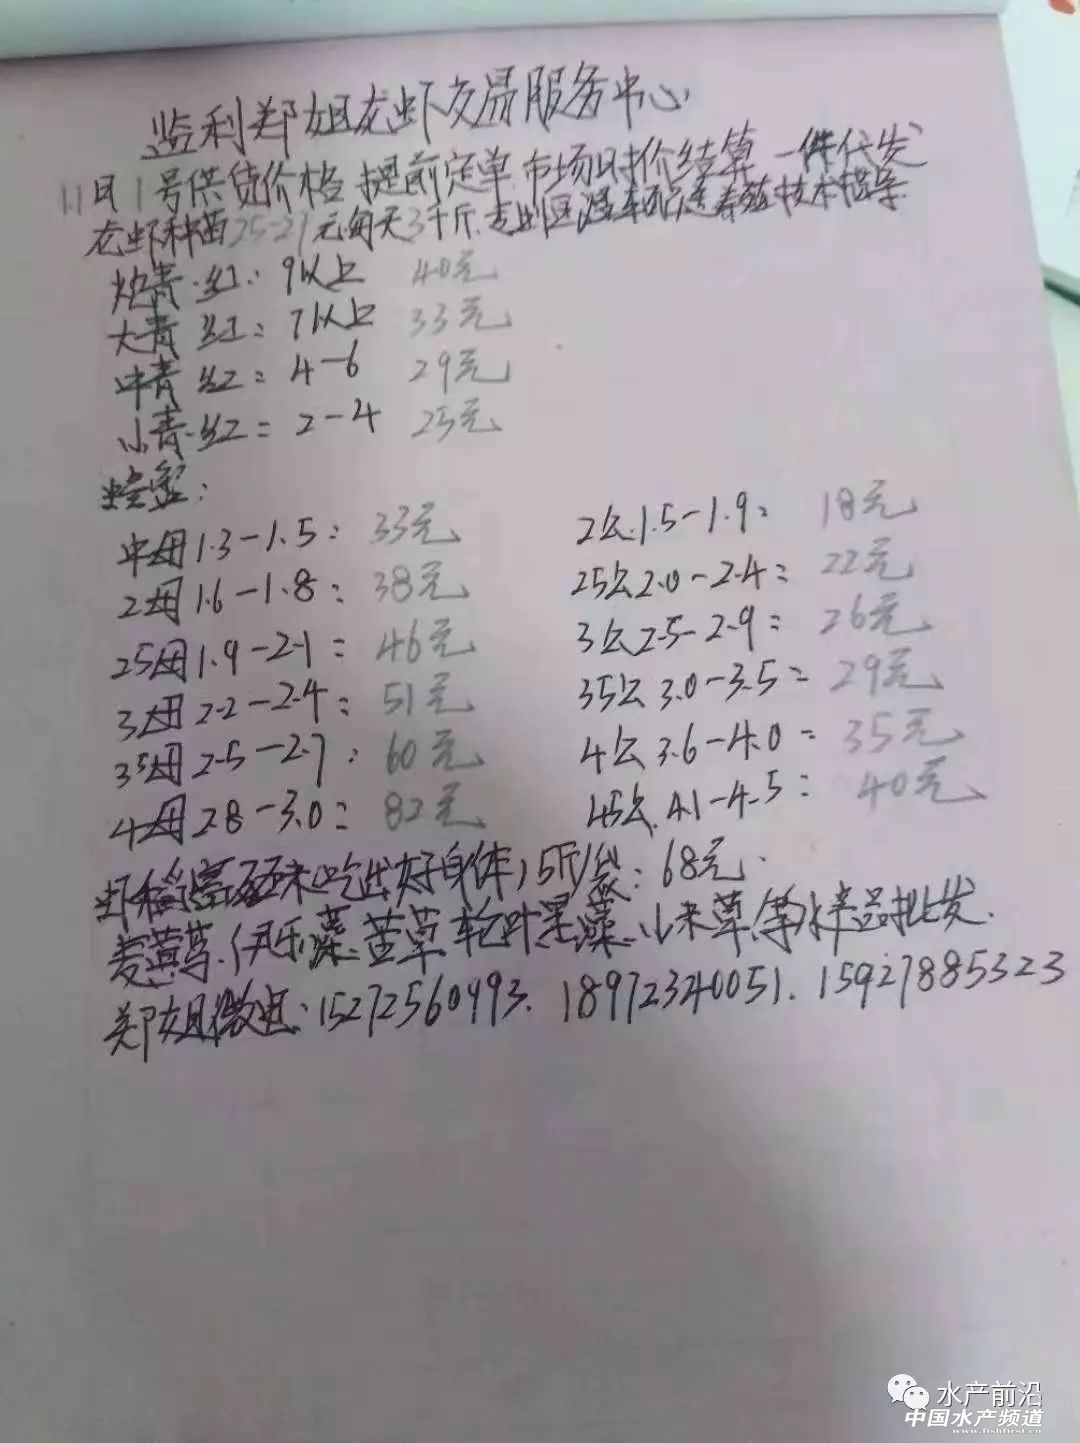 监利郑姐龙虾交易服务中心
11月1号供货价格 提前定单 市场时价结算 一件代发
龙虾种苗25-27元每天3千斤.专业 区温车配送养殖技术指导
炮青.红: 9以上 40元
大青 红: 7以上 33元
中青 红: 4-6 29元
小青.红: 2-4 25元
螃蟹:
中母1.3-1.5: 33元 2公.1.5-1.9: 18元
2母1.6-1.8: 38元 25公2.0-2.4: 22元
25母1.9-2.1: 46元 3公2.5-2.9: 26元
3母2.2-2.4: 51元 35公3.0-3.5: 29元
35母2.5-2.7: 60元 4公3.6-4.0: 35元
4母2.8-3.0: 82元 45公.4.1-4.5: 40元
虾稻 米吃出好身体,5斤/袋: 68元.
麦黄草.伊乐藻.苦草 轮叶黑藻.小米草.等 样品批发.
郑姐微电:15272560493. 18972340051. 15927885323
水产前沿
中国水产频道
www.fishfirst.cn